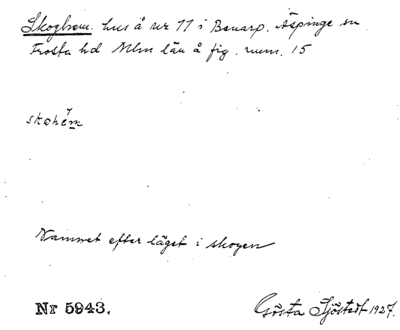 Skoghem. hus å nr 11 i Bonarp. Äspinge sn
Frosta hd Mlm län å fig. num. 15
skohém
Namnet efter läget i skogen
Nr 5943. Gösta Sjöstedt 1927.